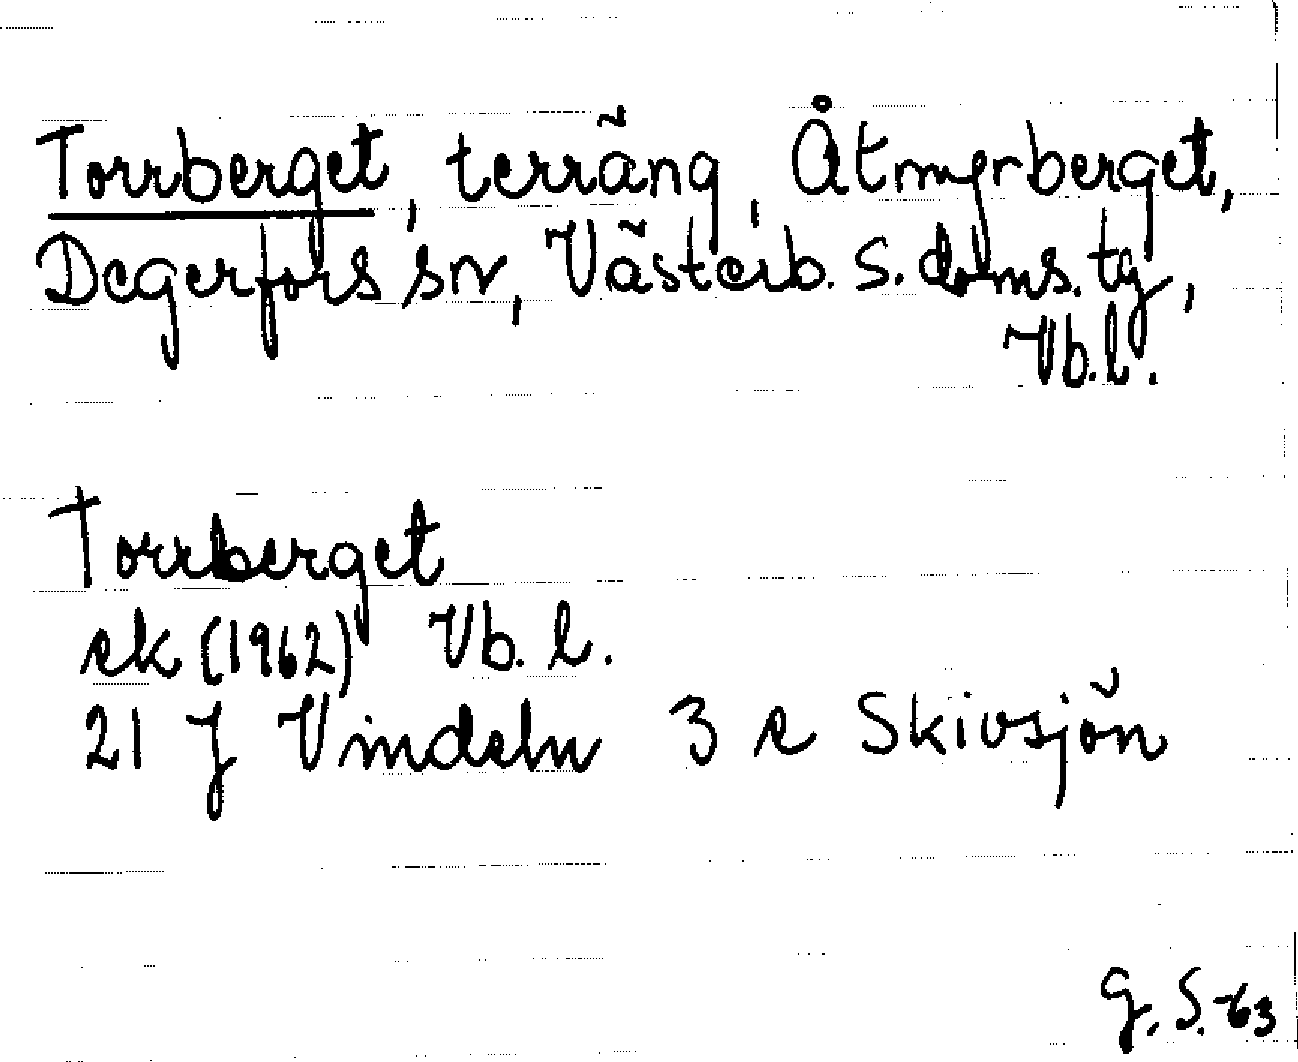 Torrberget, terräng, Åtmyrberget,
Degerfors sn, Västerb. s. doms. tg,
Vb. l.
Torrberget
ek (1962) Vb. l.
21 J Vindeln 3 e Skivsjön
G. S. -63